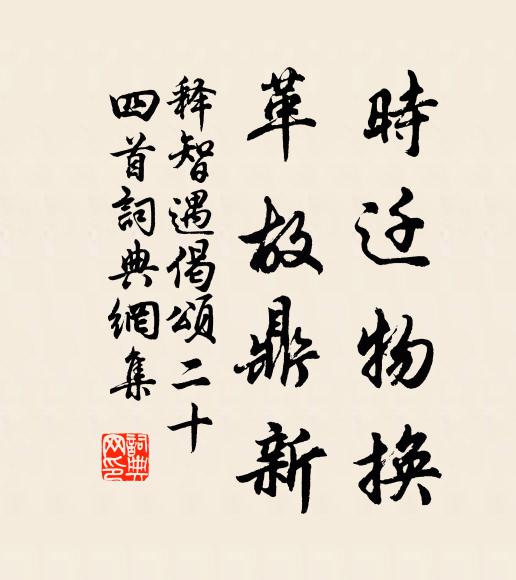 時迁物換
革故鼎新
释智遇偈頌二十
四首詞典網集
詞典網印